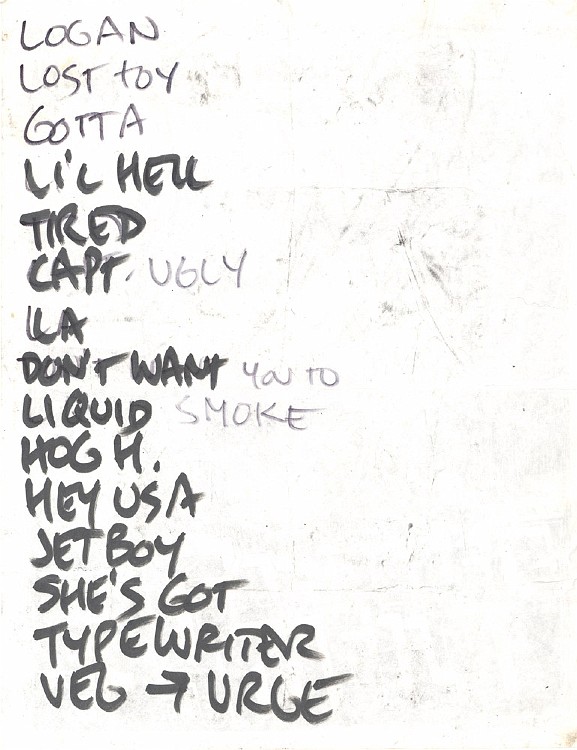 LOGAN
LOST tOY
GOTTA
LI'L HELL
TIRED
CAPT. UGLY
ILA
DON'T WANT YOU TO
LIQUID SMOKE
HOG H.
HEY USA
JET BOY
SHE'S GOT
TYPEWRITER
VEG → URGE